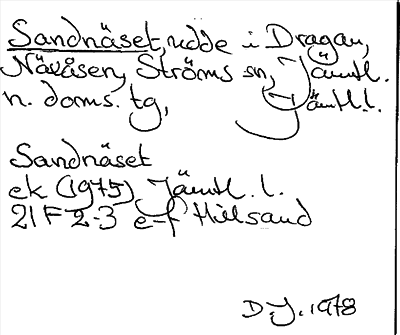 Sandnäset, udde i Dragan,
Nävåsen, Ströms sn, Jämtl.
n. doms. tg, Jämtl. l.
Sandnäset
ek (1975) Jämtl. l.
21F 2-3 e-f Hillsand
D.J. 1978